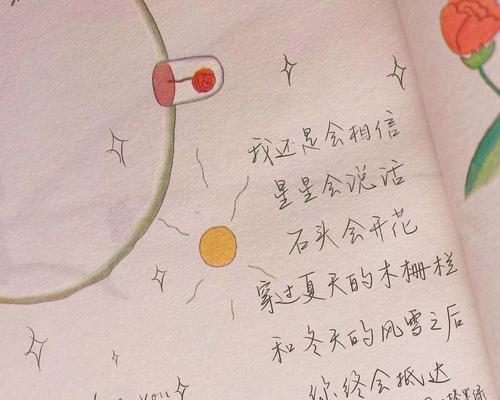 我还是会相信
星星会说话
石头会开花
穿过夏天的木栅栏
和冬天的风雪之后
你终会抵达
you